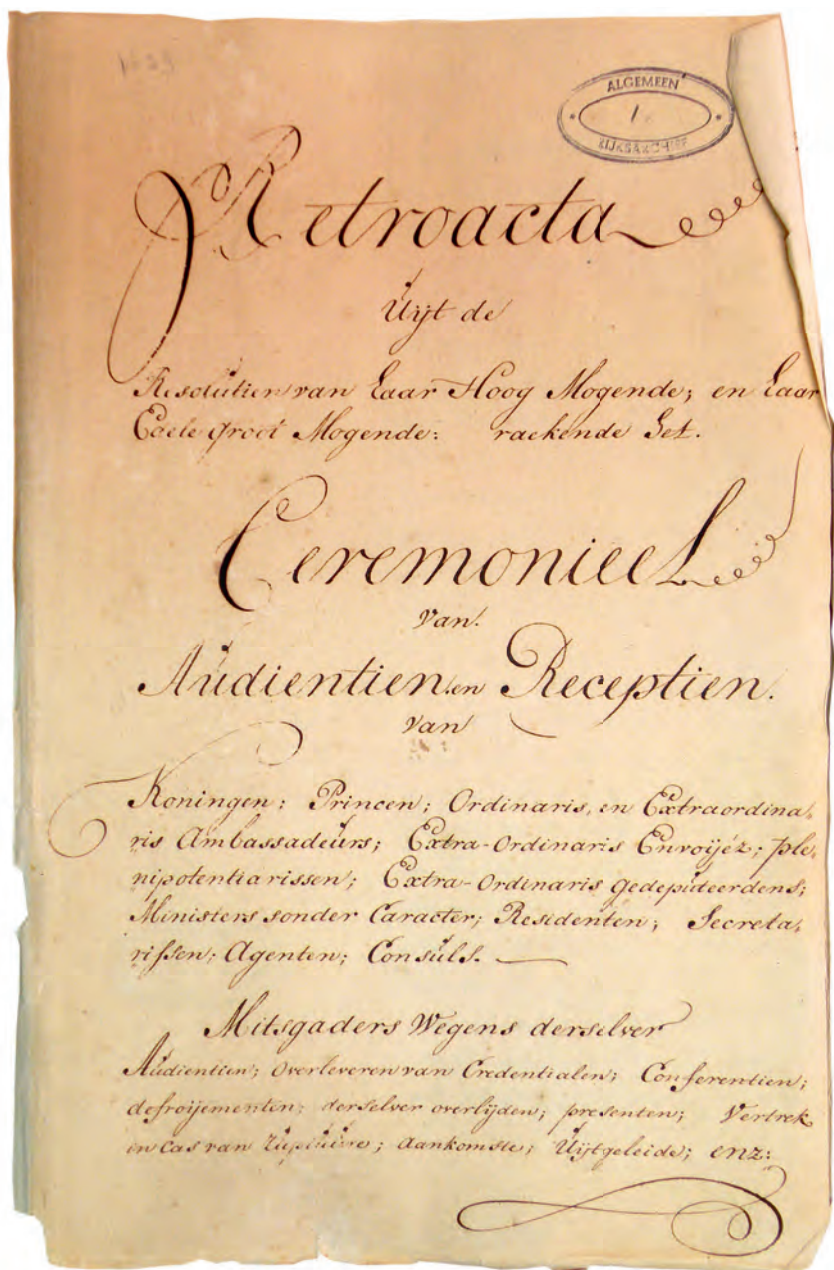 ALGEMEEN
1
RIJKSARCHIEF
Retroacta
Uijt de
Resolutien van haar Hoog Mogende; en haar
Edele groot Mogende: raekende het.
Ceremonieel
van.
Audientien en Receptien.
van
Koningen; Princen; Ordinaris, en Extraordina,
ris Ambassadeurs; Extra-Ordinaris Envoijéz; ple,
nipotentiarissen; Extra-Ordinaris gedepideerdens;
Ministers sonder Caracter; Residenten; Secreta,
rissen; Agenten; Consuls. —
Mitsgaders Wegens derselver
Audientien; overleveren van Credentialen; Conferentien;
defroijementen; derselver overlijden; presenten; Vertrek
in Cas van rupture; aankomste; Uijtgeleide; enz: